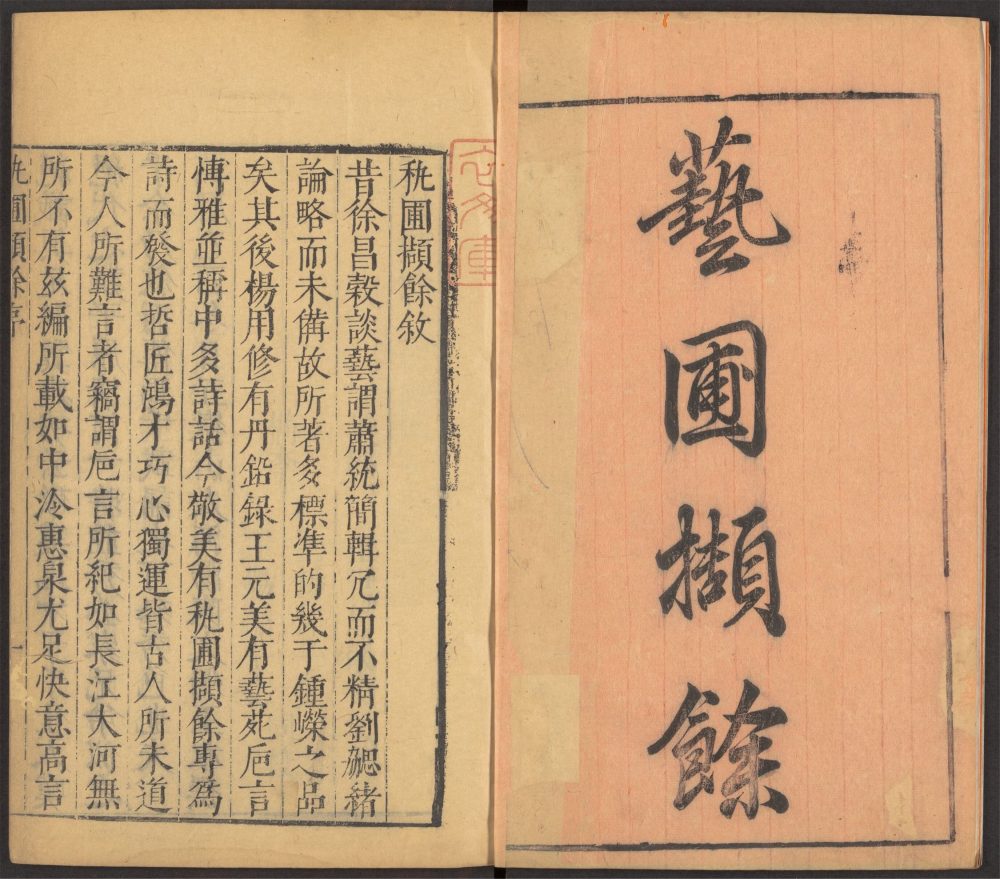 藝圃擷餘
秇圃擷餘敘
昔徐昌穀談藝謂蕭統簡輯冗而不精劉勰緒
論略而未備故所著多標準的幾于鍾嶸之品
矣其後楊用修有丹鉛錄王元美有藝苑巵言
愽雅並稱中多詩話今敬美有秇圃擷餘專為
詩而發也哲匠鴻才巧心獨運皆古人所未道
今人所難言者竊謂巵言所紀如長江大河無
所不有玆編所載如中泠惠泉尤足快意高言
秇圃擷餘序
一